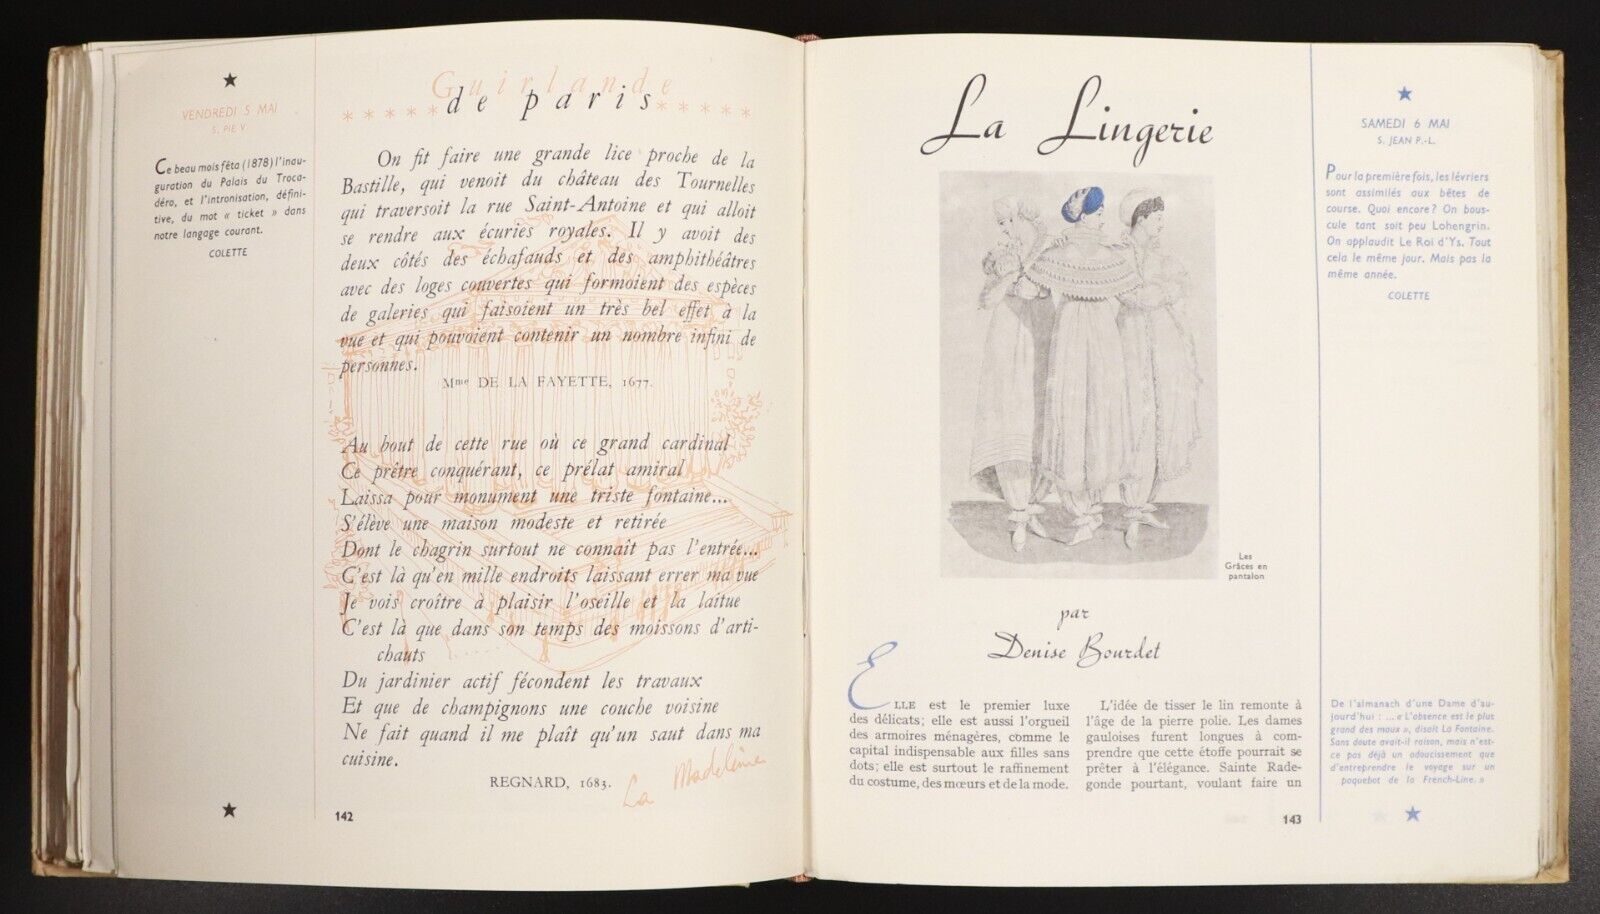 ★
VENDREDI 5 MAI
S. PIE V
Ce beau mois fêta (1878) l'inau-
guration du Palais du Troca-
déro, et l'intronisation, défini-
tive, du mot « ticket » dans
notre langage courant.
COLETTE
★
Guirlande
*****de paris*****
On fit faire une grande lice proche de la
Bastille, qui venoit du château des Tournelles
qui traversoit la rue Saint-Antoine et qui alloit
se rendre aux écuries royales. Il y avoit des
deux côtés des échafauds et des amphithéâtres
avec des loges couvertes qui formoient des espèces
de galeries qui faisoient un très bel effet à la
vue et qui pouvoient contenir un nombre infini de
personnes.
Mme DE LA FAYETTE, 1677.
Au bout de cette rue où ce grand cardinal
Ce prêtre conquérant, ce prélat amiral
Laissa pour monument une triste fontaine...
S'élève une maison modeste et retirée
Dont le chagrin surtout ne connaît pas l'entrée...
C'est là qu'en mille endroits laissant errer ma vue
Je vois croître à plaisir l'oseille et la laitue
C'est là que dans son temps des moissons d'arti-
chauts
Du jardinier actif fécondent les travaux
Et que de champignons une couche voisine
Ne fait quand il me plaît qu'un saut dans ma
cuisine.
REGNARD, 1683.
La Madeleine
142
La Lingerie
Les
Grâces en
pantalon
par
Denise Bourdet
ELLE est le premier luxe
des délicats; elle est aussi l'orgueil
des armoires ménagères, comme le
capital indispensable aux filles sans
dots; elle est surtout le raffinement
du costume, des mœurs et de la mode.
L'idée de tisser le lin remonte à
l'âge de la pierre polie. Les dames
gauloises furent longues à com-
prendre que cette étoffe pourrait se
prêter à l'élégance. Sainte Rade-
gonde pourtant, voulant faire un
143
★
SAMEDI 6 MAI
S. JEAN P.-L.
Pour la première fois, les lévriers
sont assimilés aux bêtes de
course. Quoi encore? On bous-
cule tant soit peu Lohengrin.
On applaudit Le Roi d'Ys. Tout
cela le même jour. Mais pas la
même année.
COLETTE
De l'almanach d'une Dame d'au-
jourd'hui : ... « L'absence est le plus
grand des maux », disait La Fontaine.
Sans doute avait-il raison, mais n'est-
ce pas déjà un adoucissement que
d'entreprendre le voyage sur un
paquebot de la French-Line. »
★